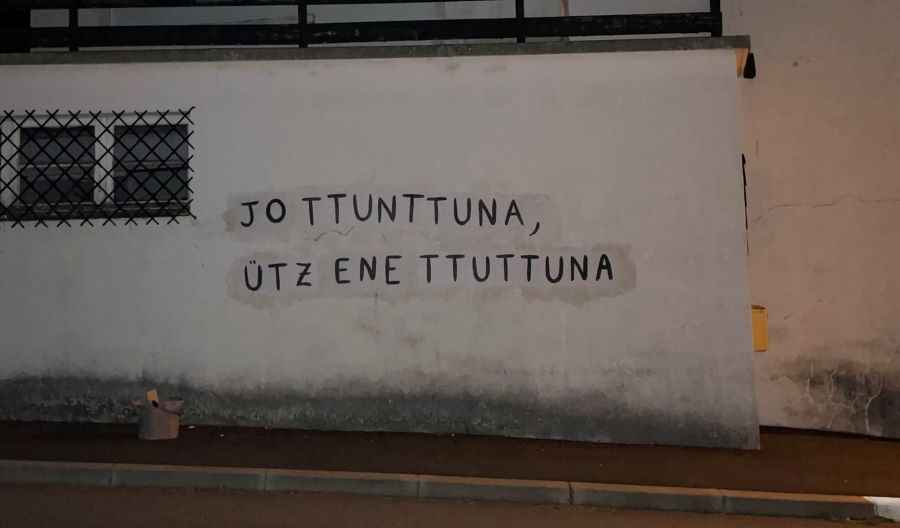 JO TTUNTTUNA,
ÜTZ ENE TTUTTUNA